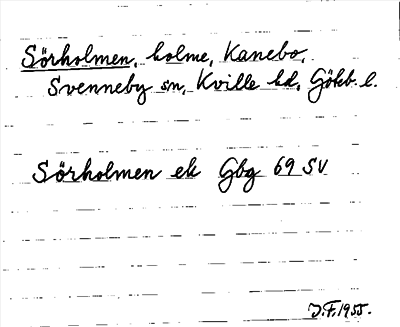 Sörholmen, holme, Kanebo,
Svenneby sn, Kville hd, Göteb. l.
Sörholmen ek Gbg 69 SV
J.F. 1955.